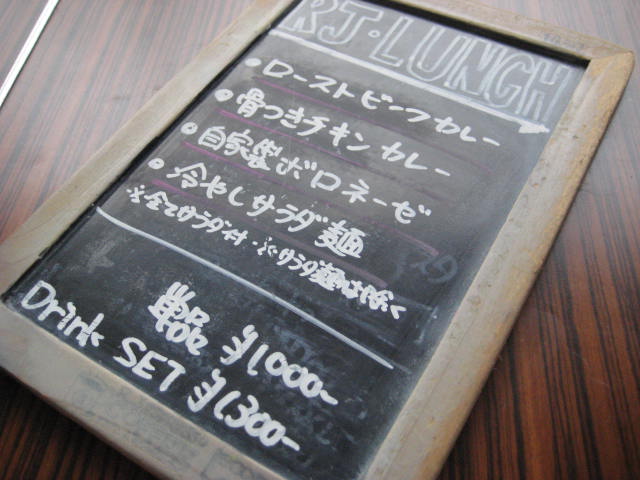 RJ・LUNCH
・ローストビーフカレー
・骨つきチキンカレー
・自家製ボロネーゼ
・冷やしサラダ麺
※全てサラダ付・サラダ麺は除く
単品 ¥1000-
Drink SET ¥1300-